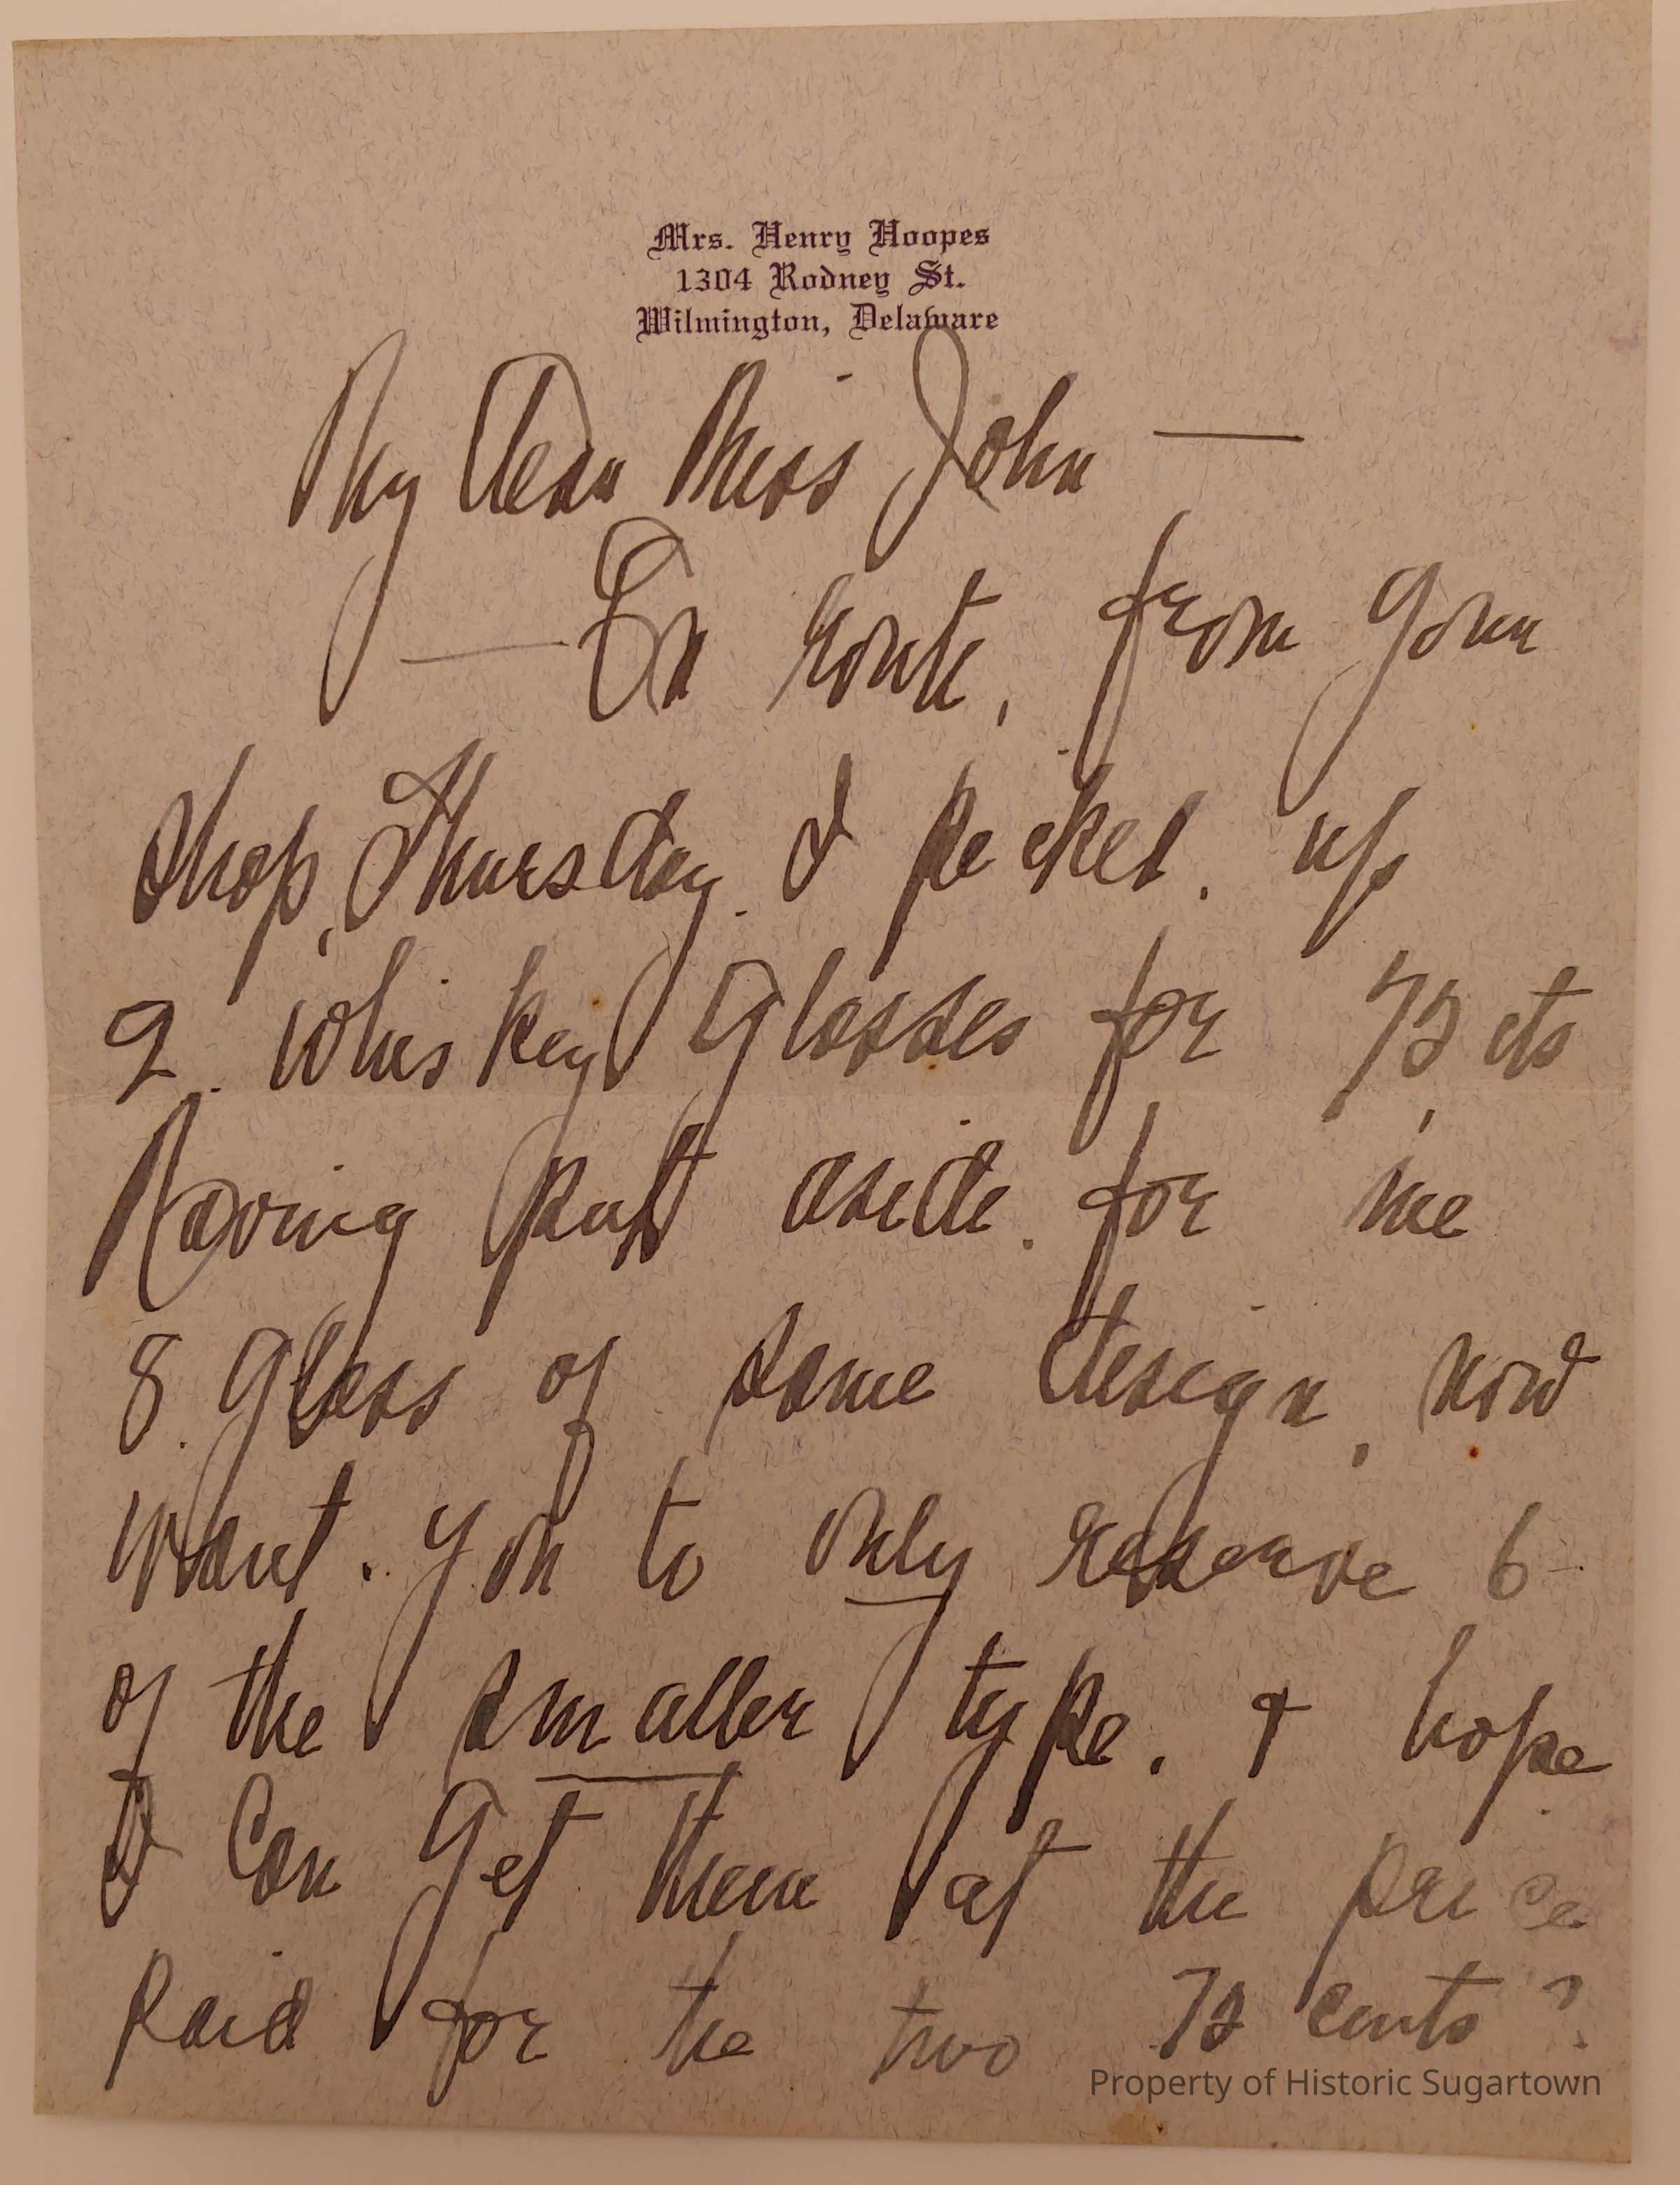 Mrs. Henry Hoopes
1304 Rodney St.
Wilmington, Delaware
My Dear Miss John —
— En route, from your
shop, Thursday. I picked. up
2. Whiskey Glasses for 75 cts,
Having put aside. for me
8. glass of same design, now
want. you to only reserve 6
of the smaller type. & hope
I can get them at the price
paid for the two 75 cents?
Property of Historic Sugartown